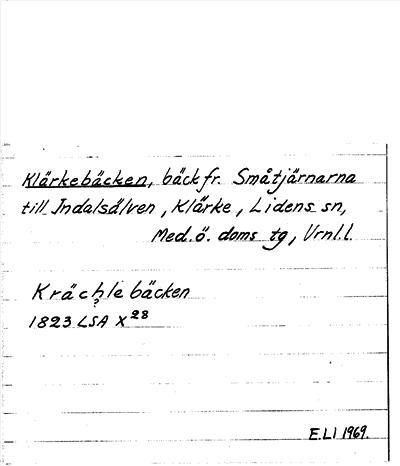 Klärkebäcken, bäck fr. Småtjärnarna
till Indalsälven, Klärke, Lidens sn,
Med. ö. doms tg, Vrnl.l.
Krächle bäcken
?
1823 LSA X28
E.LI 1969.